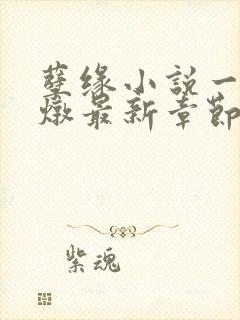 孽缘小說一
燉最新章節
紫魂